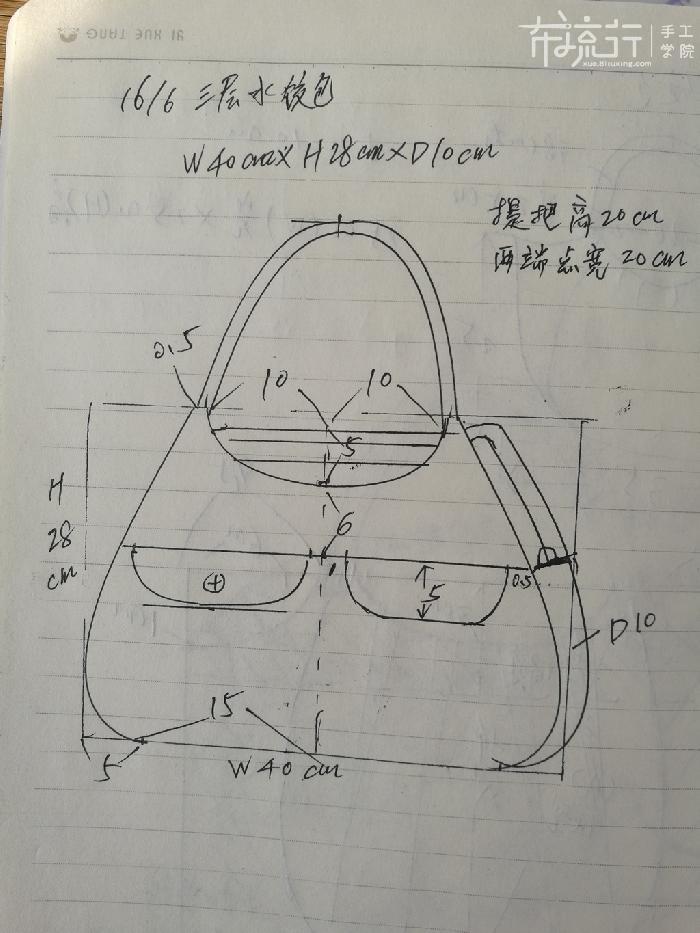 AI XUE TANG
布流行
手工
学院
xue.buliuxing.com
16/6 三层水饺包
W40cm×H28cm×D10cm
提把高20cm
两端点宽20cm
0.5
10
10
5
H
28
cm
6
5
0.5
D10
15
5
W40cm